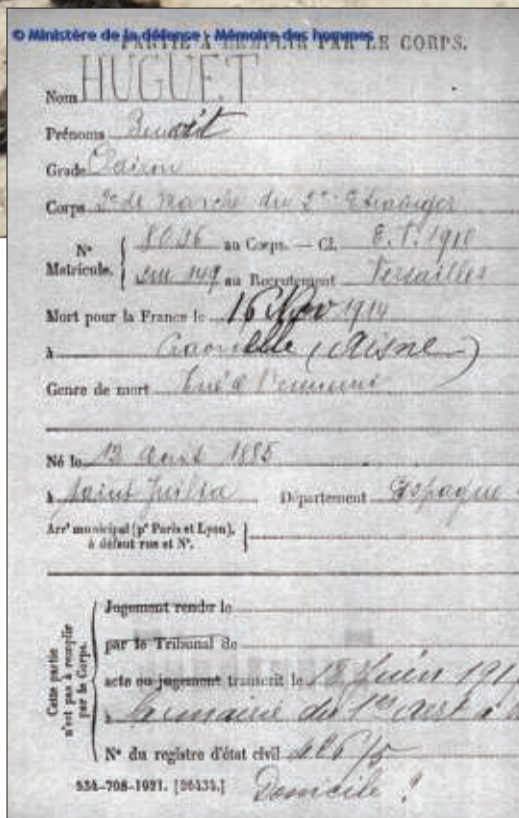 © Ministère de la défense - Mémoire des hommes
PARTIE A REMPLIR PAR LE CORPS.
Nom HUGUET
Prénoms Benoit
Grade Clairon
Corps 2e de Marche du 2e Etranger
N° Matricule. { 8036 au Corps. — Cl. E.V. 1910
149 au Recrutement Versailles
Mort pour la France le 16 Nov 1914
à Craonnelle (Aisne)
Genre de mort Tué à l'ennemi
Né le 13 Aout 1885
à Saint Département Espagne
Arrt municipal (pr Paris et Lyon), à défaut rue et N°.
Cette partie n'est pas à remplir par le Corps.
Jugement rendu le
par le Tribunal de
acte ou jugement transcrit le 18 Juin
à la mairie du 1er
N° du registre d'état civil
534-708-1921. [26434.] Domicile ?